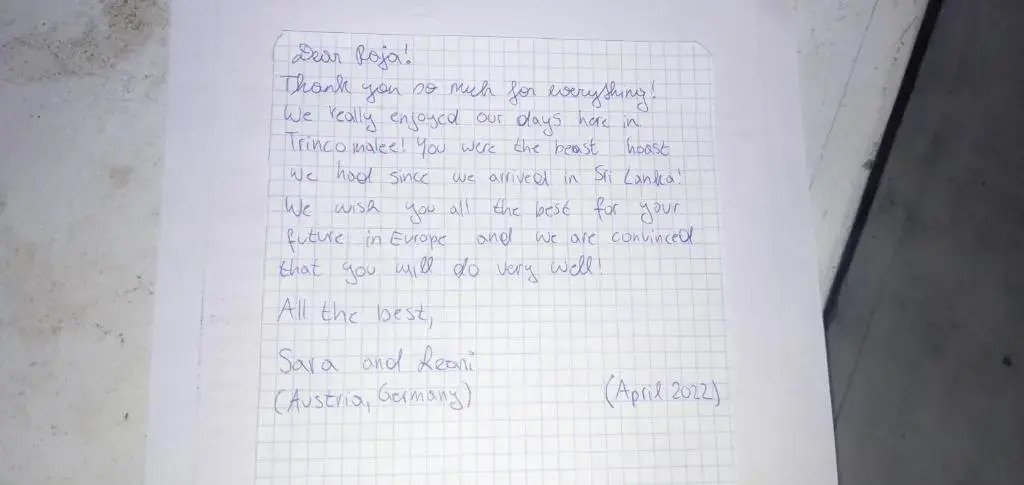 Dear Roja!
Thank you so much for everything!
We really enjoyed our days here in
Trincomalee! You were the beast hoast
we had since we arrived in Sri Lanka!
We wish you all the best for your
future in Europe and we are convinced
that you will do very well!
All the best,
Sara and Leoni
(Austria, Germany) (April 2022)